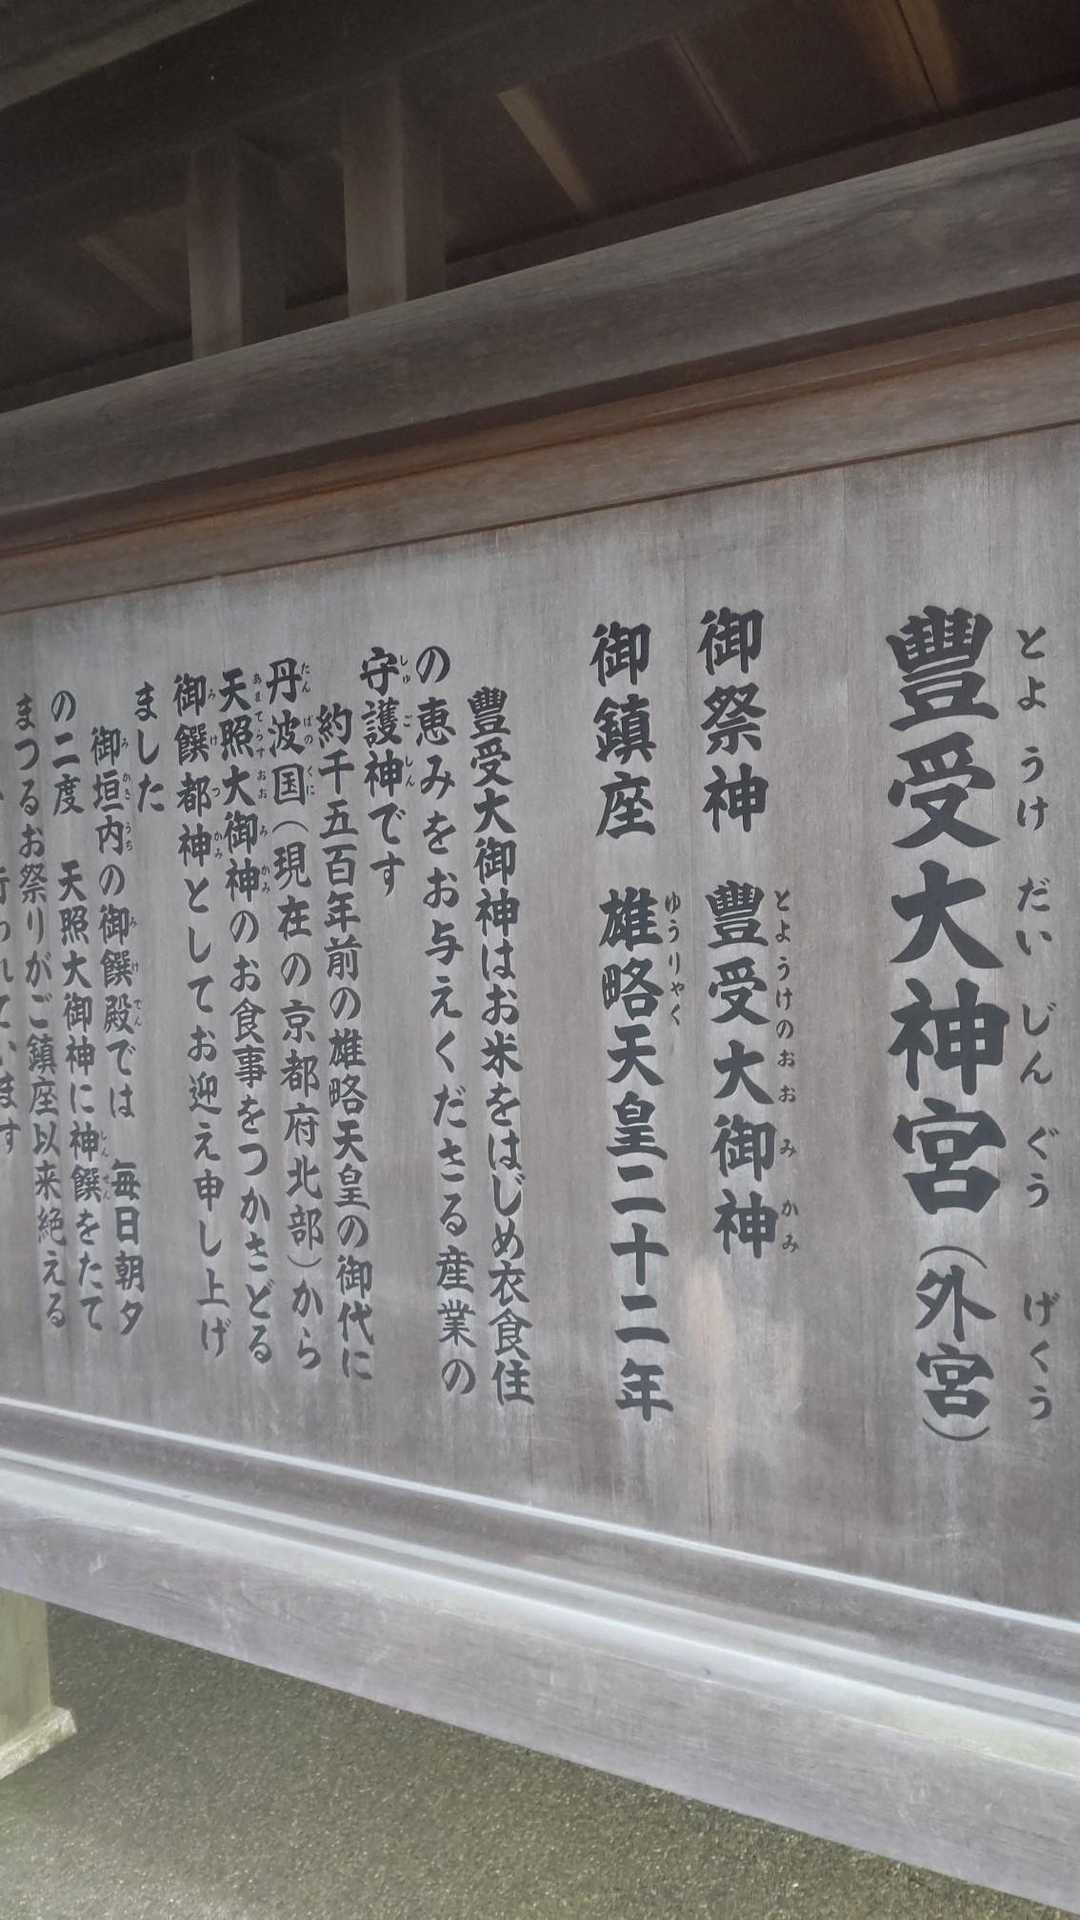 豐受大神宮（外宮）
とようけだいじんぐう げくう
御祭神 豐受大御神
とようけのおおみかみ
御鎮座 雄略天皇二十二年
ゆうりゃく
豐受大御神はお米をはじめ衣食住
の恵みをお与えくださる産業の
守護神です
しゅごしん
約千五百年前の雄略天皇の御代に
丹波国（現在の京都府北部）から
たんばのくに
天照大御神のお食事をつかさどる
あまてらすおおみかみ
御饌都神としてお迎え申し上げ
みけつかみ
ました
御垣内の御饌殿では 毎日朝夕
みかきうち みけでん
の二度 天照大御神に神饌をたて
しんせん
まつるお祭りがご鎮座以来絶える
行われています